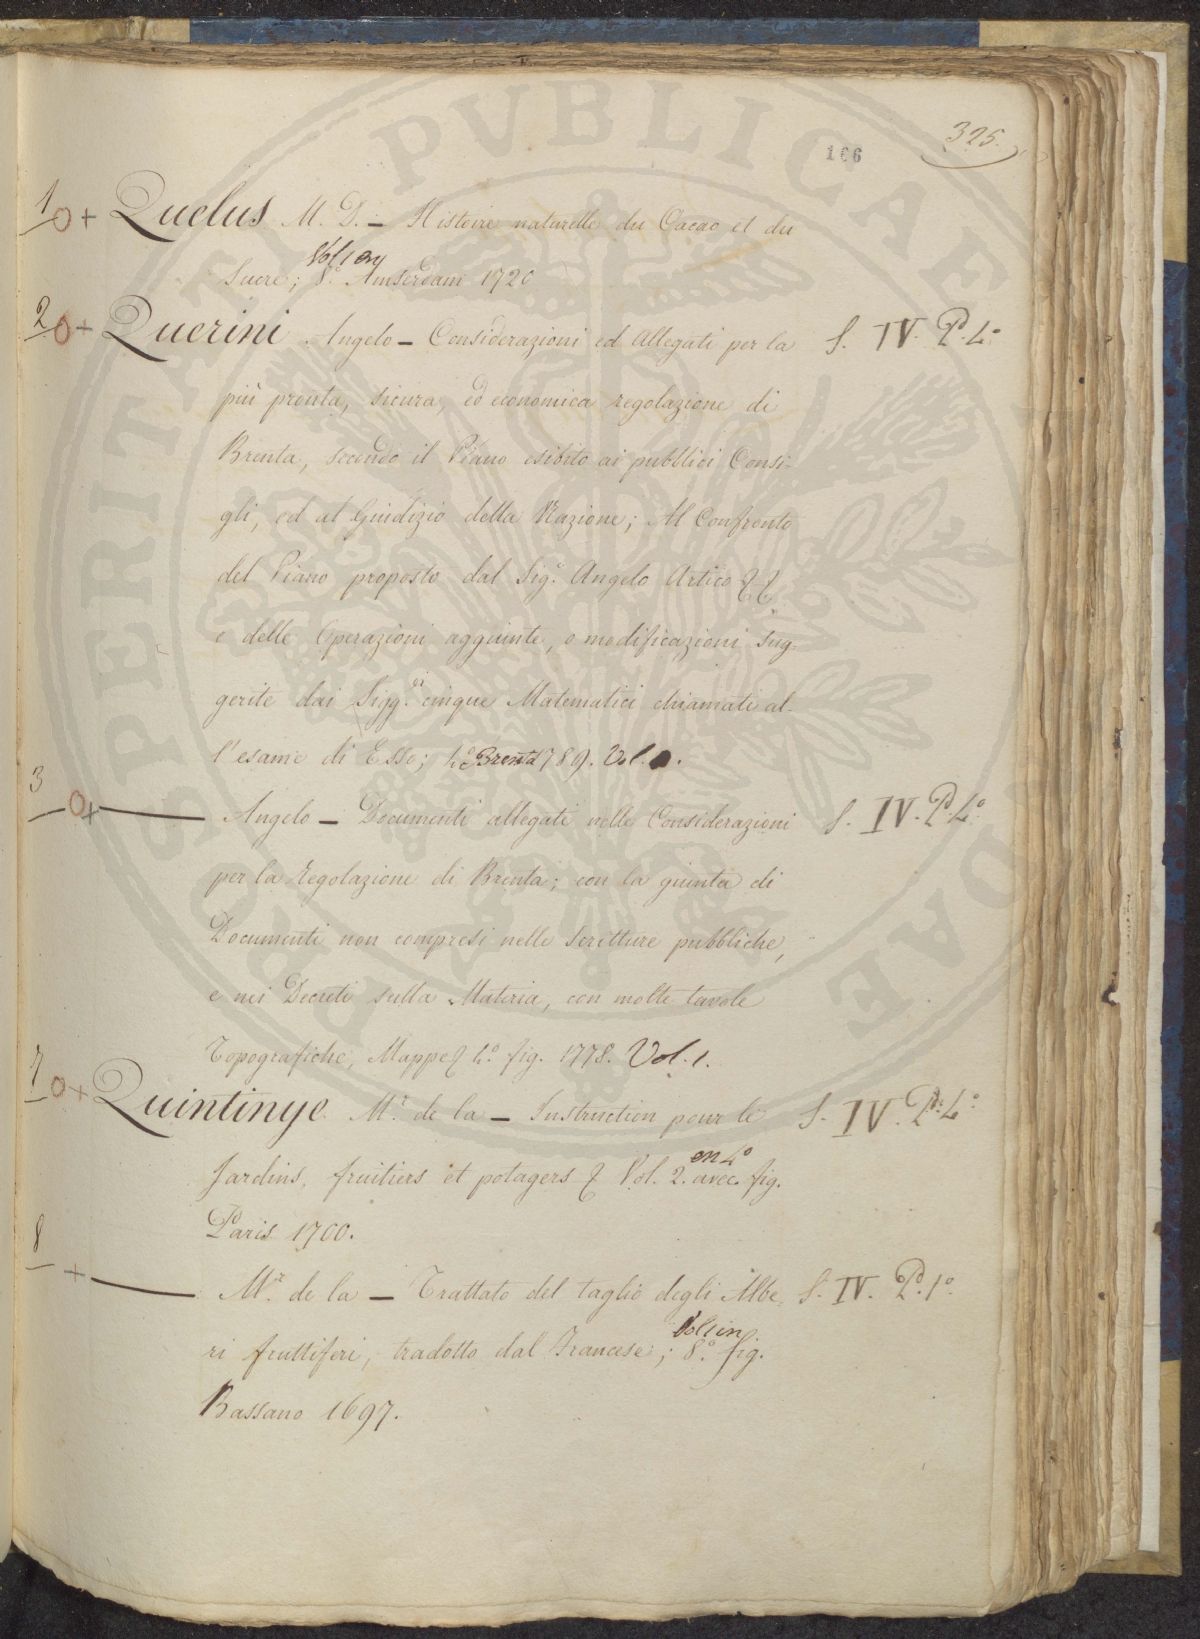 325.
166
1 0 + Quelus M. D. – Histoire naturelle du Cacao et du
Vol 1 en
Sucre; 8.° Amsterdam 1720
2 0 + Querini Angelo – Considerazioni ed Allegati per la S. IV. P. 4.°
più pronta, sicura, ed economica regolazione di
Brenta, secondo il Piano esibito ai pubblici Consi-
gli, ed al Giudizio della Nazione; Al Confronto
del Piano proposto dal Sig.r Angelo Artico
e delle Operazioni aggiunte, o modificazioni sug-
gerite dai Sigg.ri cinque Matematici chiamati al-
l'esame di Esso; 4.° 1789. Vol.
3 0 + —— Angelo – Documenti allegati nelle Considerazioni S. IV. P. 4.°
per la Regolazione di Brenta; con la giunta di
Documenti non compresi nelle Scritture pubbliche,
e nei Decreti sulla Materia, con molte tavole
Topografiche, Mappe 4.° fig. 1778. Vol. 1.
7 0 + Quintinye M.r de la – Instruction pour le S. IV. P. 4.°
en 4°
Jardins, fruitiers et potagers Vol. 2. avec. fig.
Paris 1700.
8 + —— M.r de la – Trattato del taglio degli Albe S. IV. P. 1.°
Vol 1 in
ri fruttiferi, tradotto dal Francese; 8.° fig.
Bassano 1697.
PROSPERITATI PUBLICAE NOVAE